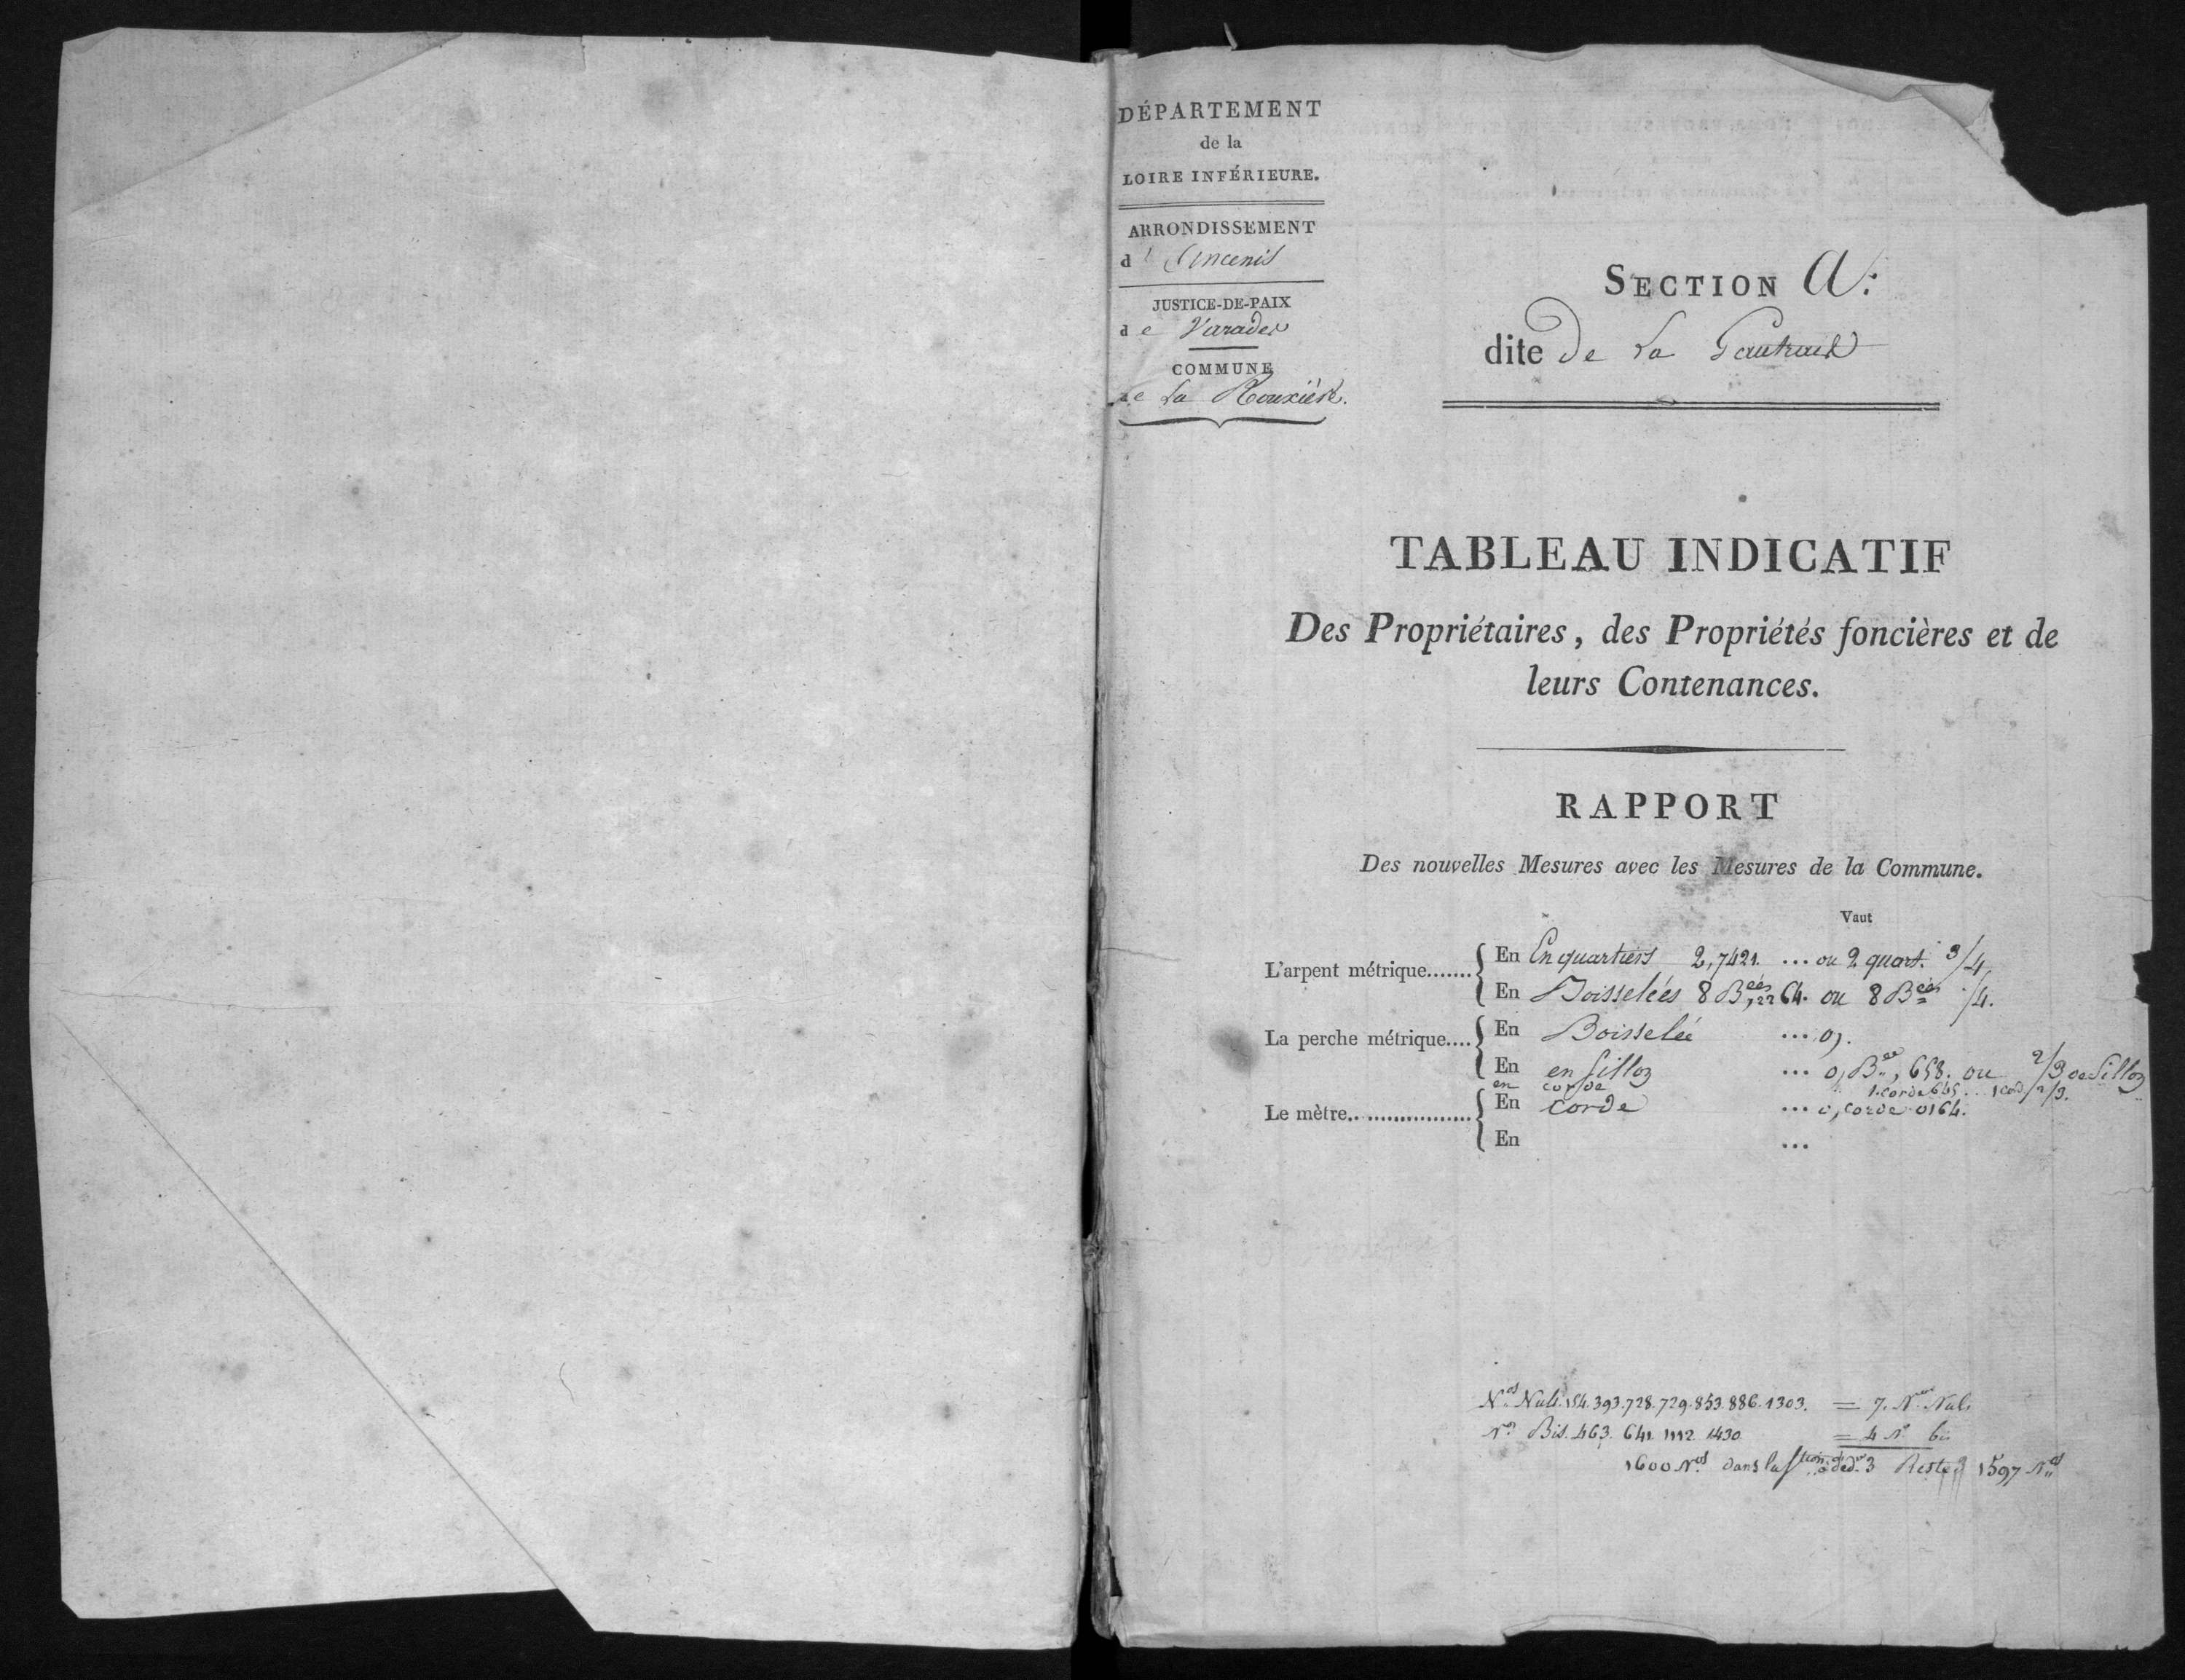 DÉPARTEMENT
de la
LOIRE INFÉRIEURE.
ARRONDISSEMENT
d'Ancenis
JUSTICE-DE-PAIX
de Varades
COMMUNE
de La Rouxière.
SECTION A.
dite de La
TABLEAU INDICATIF
Des Propriétaires, des Propriétés foncières et de
leurs Contenances.
RAPPORT
Des nouvelles Mesures avec les Mesures de la Commune.
Vaut
L'arpent métrique....... En En quartiers 2,7421. ... ou 2 quart. 3/4,
En Boisselées 8 Bées, 2264. ou 8 Bées /4.
La perche métrique.... En Boisselée ... 0,.
En en Sillon ... 0, 658. ou 2/3 de Sillon
en corde 1.corde 645 .. 1 cord 2/3.
Le mètre.................. En corde ... 0, corde 0164.
En ...
Nos Nuls. 184. 393. 728. 729. 853. 886. 1303. = 7. Nos Nuls
Nos Bis. 463. 641. 1112. 1430 = 4 Nos bis
1600 Nos dans la Stion à déd. 3 Reste 1597 Nos